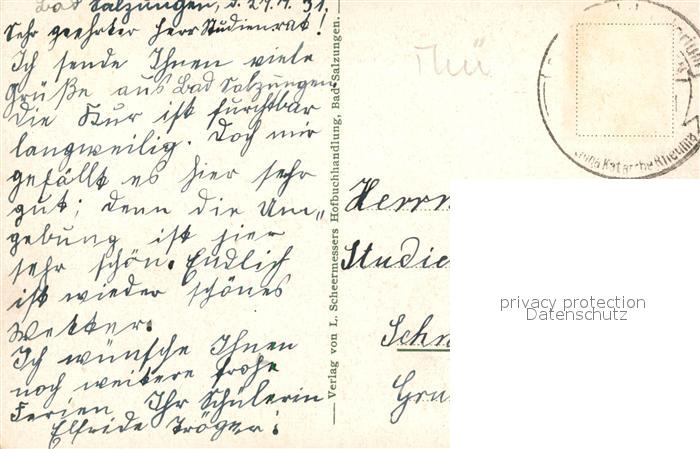 Bad Salzungen, d. 27.7.31.
Sehr geehrter Herr Studienrat!
Ich sende Ihnen viele
Grüße aus Bad Salzungen.
Die Kur ist furchtbar
langweilig. Doch mir
gefällt es hier sehr
gut; denn die Um„
gebung ist hier
sehr schön. Endlich
ist wieder schönes
Wetter.
Ich wünsche Ihnen
noch weitere frohe
Ferien. Ihr Schülerin
Elfride Tröger.
Verlag von L. Scheermessers Hofbuchhandlung, Bad-Salzungen.
Thü
Katarrhe Rheuma
Herrn
Studie
Schn
Gru
privacy protection
Datenschutz